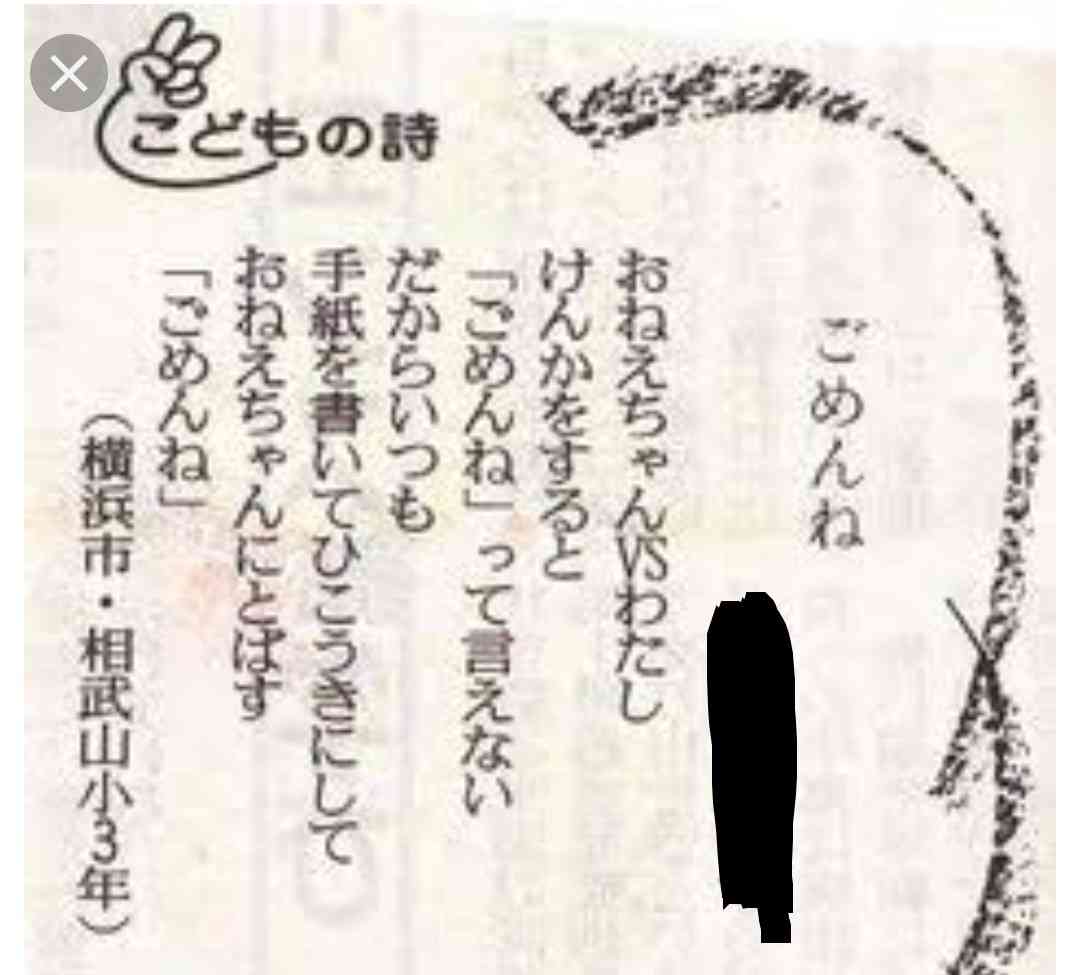 こどもの詩
ごめんね
おねえちゃんVSわたし
けんかをすると
「ごめんね」って言えない
だからいつも
手紙を書いてひこうきにして
おねえちゃんにとばす
「ごめんね」
（横浜市・相武山小3年）